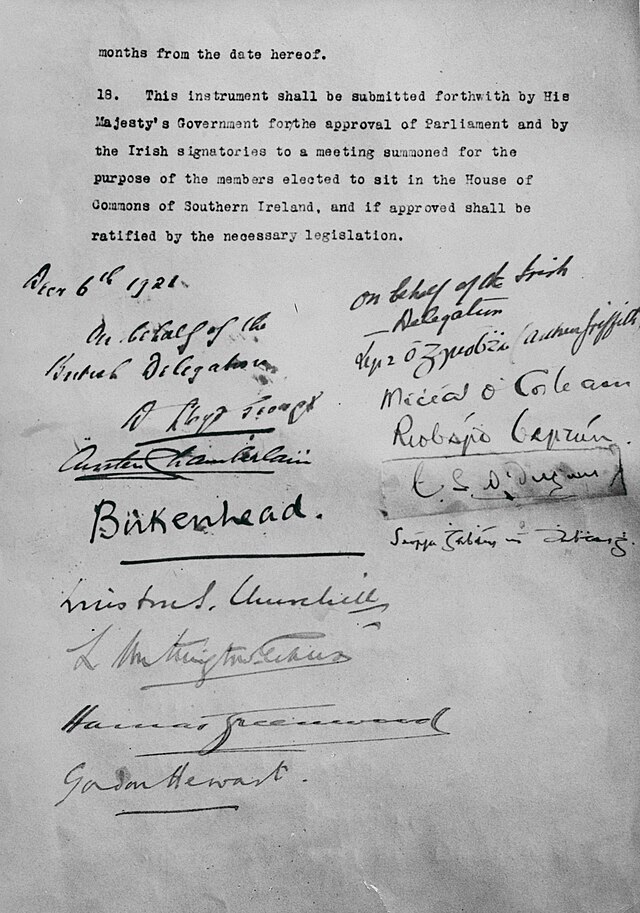 months from the date hereof.
18. This instrument shall be submitted forthwith by His
Majesty's Government for/the approval of Parliament and by
the Irish signatories to a meeting summoned for the
purpose of the members elected to sit in the House of
Commons of Southern Ireland, and if approved shall be
ratified by the necessary legislation.
Decr 6th 1921
On behalf of the
British Delegation
D Lloyd George
Austen Chamberlain
Birkenhead.
Winston S. Churchill
L Worthington-Evans
Hamar Greenwood
Gordon Hewart.
On behalf of the Irish
Delegation
Art Ó Gríobhtha (Arthur Griffith)
Mícéal Ó Coileain
Riobárd Bartún.
E. S. Ó Dugain